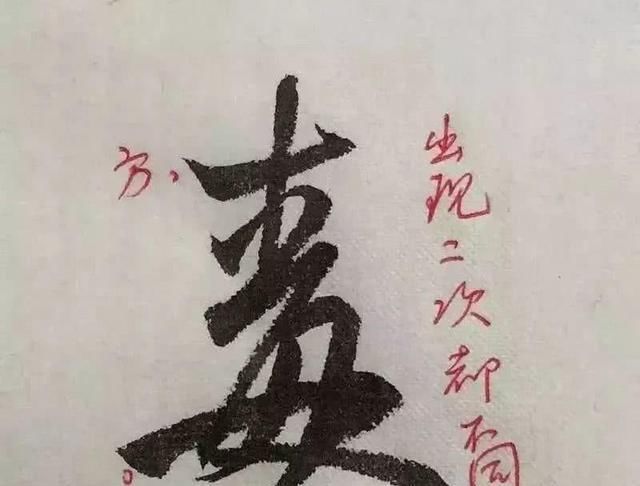 出现二次都不同
方、